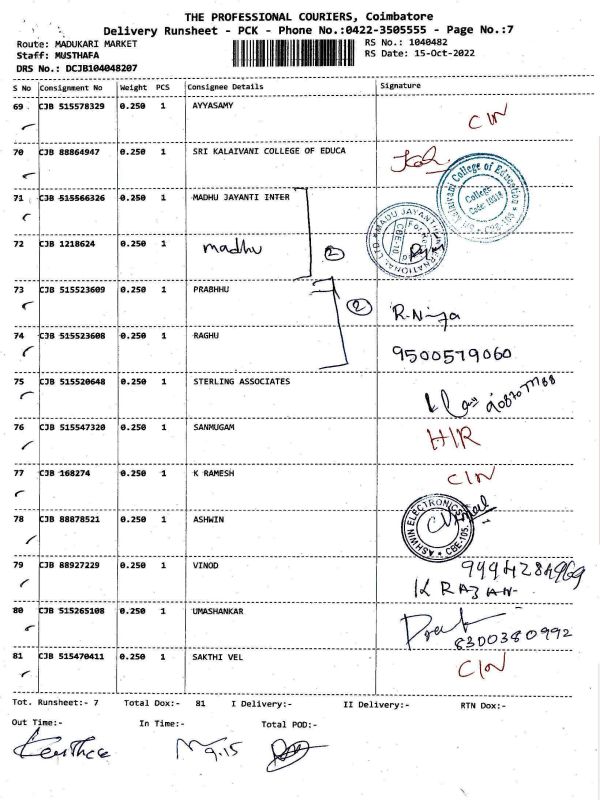 THE PROFESSIONAL COURIERS, Coimbatore
Delivery Runsheet - PCK - Phone No.:0422-3505555 - Page No.:7
Route: MADUKARI MARKET RS No.: 1040482
Staff: MUSTHAFA RS Date: 15-Oct-2022
DRS No.: DCJB104048207
S No Consignment No Weight PCS Consignee Details Signature
69 CJB 515578329 0.250 1 AYYASAMY CIN
70 CJB 88864947 0.250 1 SRI KALAIVANI COLLEGE OF EDUCA
Kalaivani College of Education
College Code: 10318
CBE-105
71 CJB 515566326 0.250 1 MADHU JAYANTI INTER
72 CJB 1218624 0.250 1 madhu 2
MADU JAYANTHI INTERNATIONAL LTD
CBE-10
73 CJB 515523609 0.250 1 PRABHHU 2
74 CJB 515523608 0.250 1 RAGHU 9500579060
75 CJB 515520648 0.250 1 STERLING ASSOCIATES
76 CJB 515547320 0.250 1 SANMUGAM H/R
77 CJB 168274 0.250 1 K RAMESH CIN
78 CJB 88878521 0.250 1 ASHWIN
ASHWIN ELECTRONICS CBE-105.
79 CJB 88927229 0.250 1 VINOD 9994284969
K RAJAN
80 CJB 515265108 0.250 1 UMASHANKAR 8300380992
81 CJB 515470411 0.250 1 SAKTHI VEL CIN
Tot. Runsheet:- 7 Total Dox:- 81 I Delivery:- II Delivery:- RTN Dox:-
Out Time:- In Time:- Total POD:-
9.15